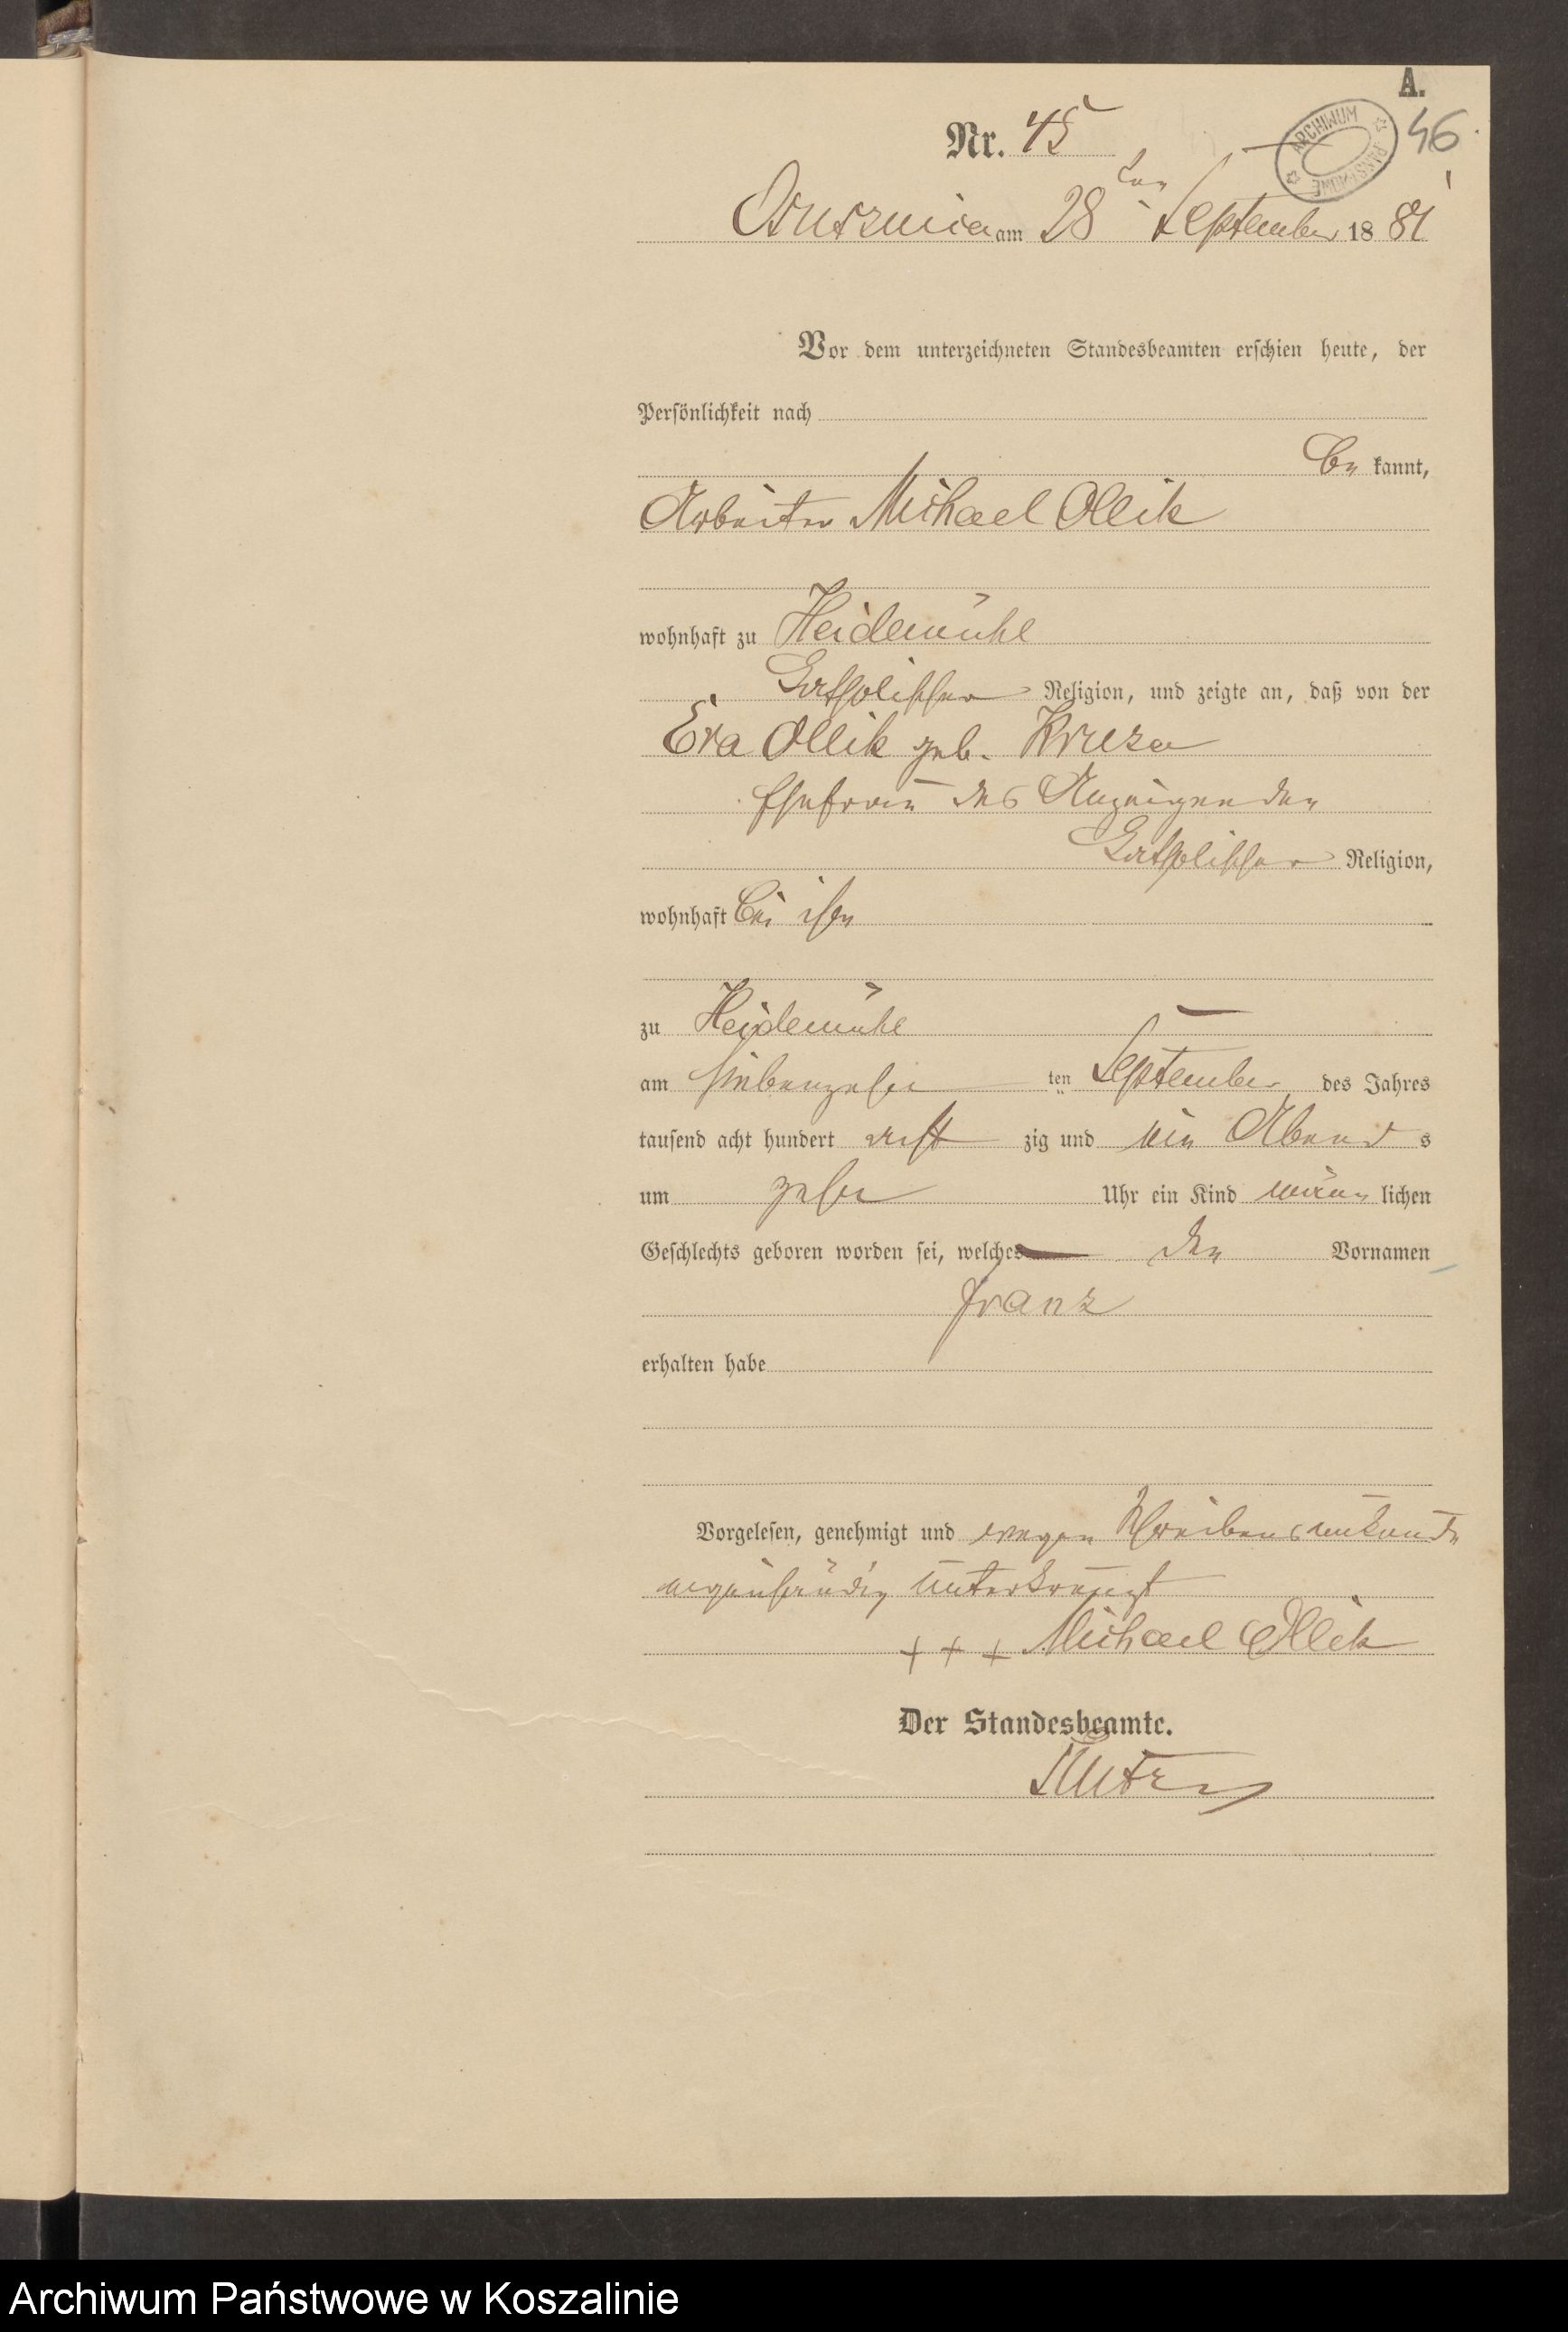 A.
Nr. 45
46.
ARCHIWUM PAŃSTWOWE
Ossusznica am 28ten September 1881
Vor dem unterzeichneten Standesbeamten erschien heute, der
Persönlichkeit nach
be kannt,
Arbeiter Michael Ollik
wohnhaft zu Heidemühle
katholischer Religion, und zeigte an, daß von der
Eva Ollik geb. Kruza
Ehefrau des Anzeigenden
katholischer Religion,
wohnhaft bei ihm
zu Heidemühle
am siebenzehn ten September des Jahres
tausend acht hundert acht zig und ein Abend s
um zehn Uhr ein Kind männ lichen
Geschlechts geboren worden sei, welches den Vornamen
Franz
erhalten habe
Vorgelesen, genehmigt und wegen Schreibensunkunde
eigenhändig unterkreuzt
+ + + Michael Ollik
Der Standesbeamte.
Archiwum Państwowe w Koszalinie